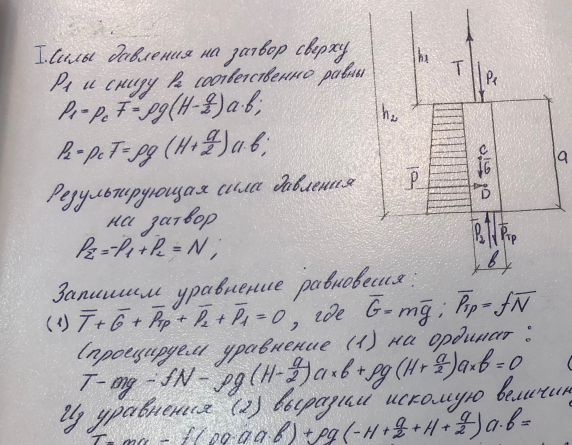 I. Силы давления на затвор сверху
P₁ и снизу P₂ соответственно равны
P₁=p_c F=ρg(H-a/2)a·b;
P₂=p_c F=ρg(H+a/2)a·b;
Результирующая сила давления
на затвор
P_Σ=-P₁+P₂=N;
Запишим уравнение равновесия:
(1) T̅+G̅+P̅тр+P̅₂+P̅₁=0, где G̅=mg̅; P̅тр=fN̅
(проецируем уравнение (1) на ординат:
T-mg-fN-ρg(H-a/2)a×b+ρg(H+a/2)a×b=0
Из уравнения (2) выразим искомую величин
T=mg-f(ρg·a·a·b)+ρg(-H+a/2+H+a/2)a·b=
h₁
T
P₁
h₂
C
G̅
P̅
D
a
P̅₂
P̅тр
b